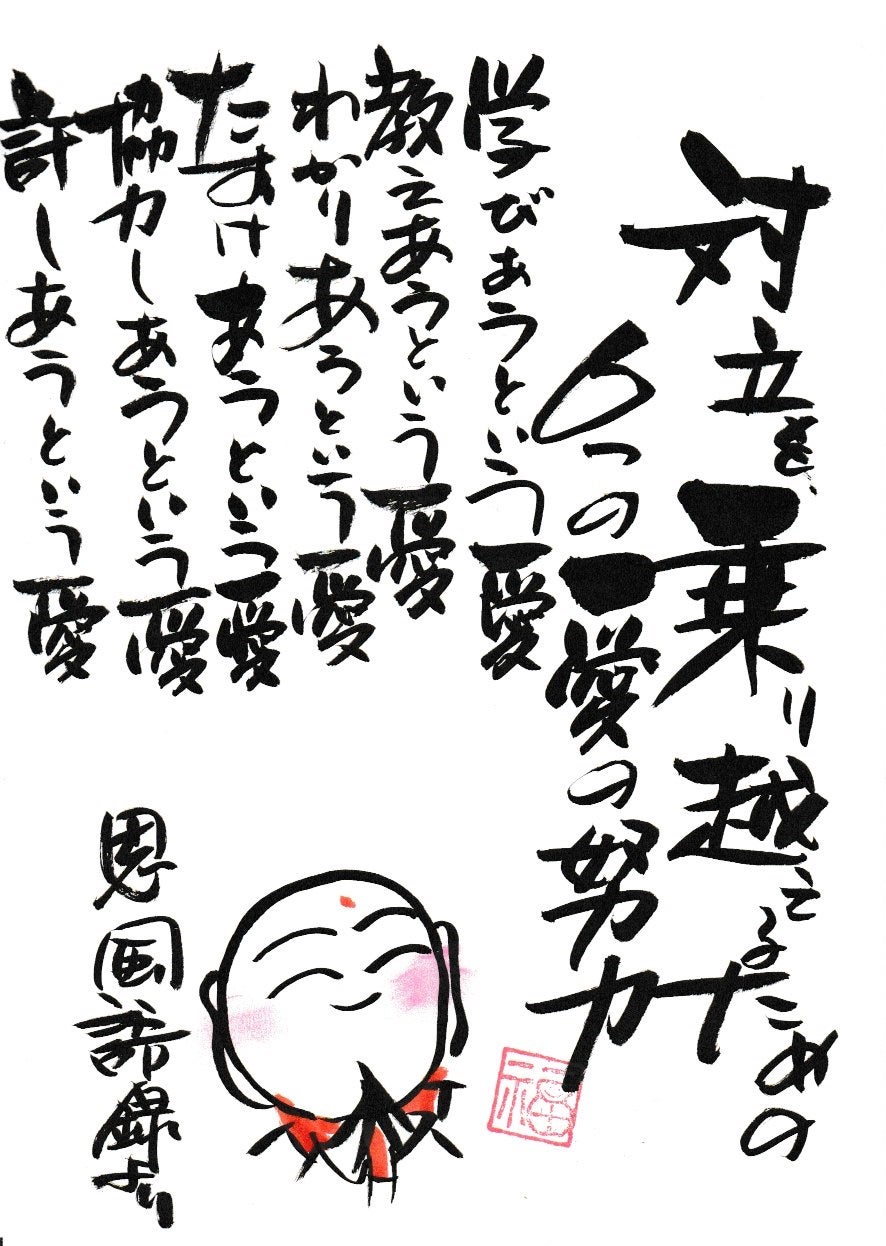 対立を、乗り越えるための
6つの愛の努力
学びあうという愛
教えあうという愛
わかりあうという愛
たすけあうという愛
協力しあうという愛
許しあうという愛
思風語録より
一福